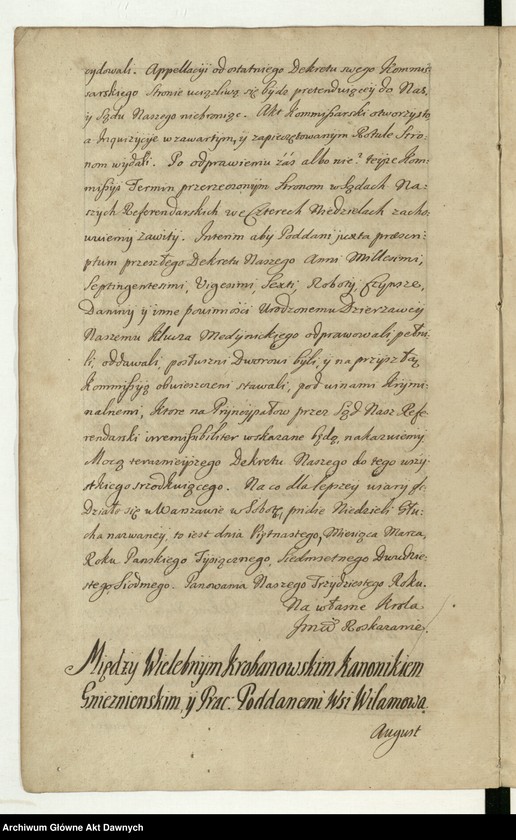 cydowali. Appellacyi od ostatniego Dekretu swego Kommis-
sarskiego Stronie uciążliwą się bydź pretenduiącey do Nas,
y Sądu Naszego niebroniąc. Akt Kommissarski otworzysto
a Inquizycye w zawartym, y zapieczętowanym Rotule Stro-
nom wydali. Po odprawieniu záś albo nie? teyże Kom-
missyi Termin przerzeczonym Stronom w Sądach Na-
szych Referendarskich we Czterech Niedzielach zacho-
wuiemy zawity. Interim aby Poddani juxta præscri-
ptum przeszłego Dekretu Naszego Anni Millesimi,
Septingentesimi, Vigesimi, Sexti, Roboty, Czynsze,
Daniny y inne powinności Urodzonemu Dzierzawcy
Naszemu klucza Medynickiego odprawowali, pełni-
li, oddawali, posłuszni Dworowi byli, y na przyszłą
Kommissyą obwieszczeni stawali, pod winami krymi-
nalnemi, ktore na Pryncypałow przez Sąd Nasz Refe-
rendarski irremissibiliter wskazane będą, nakazuiemy
Mocą teraznieyszego Dekretu Naszego do tego wszy-
stkiego srzodkuiącego. Na co dla lepszey wiary &c.
Działo się w Warszawie w Sobotę, przed Niedzielą Głu-
chą nazwaney, to iest dnia Piętnastego, Miesiąca Marca,
Roku Panskiego Tysiącznego, Siedmsetnego Dwudzie-
stego, Siodmego. Panowania Naszego Trzydziestego Roku.
Na własne Krola
Jmci Roskazanie.
Między Wielebnym Krobanowskim Kanonikiem
Gnieznienskim, y Prac: Poddanemi Wsi Wilamowa.
August
Archiwum Główne Akt Dawnych